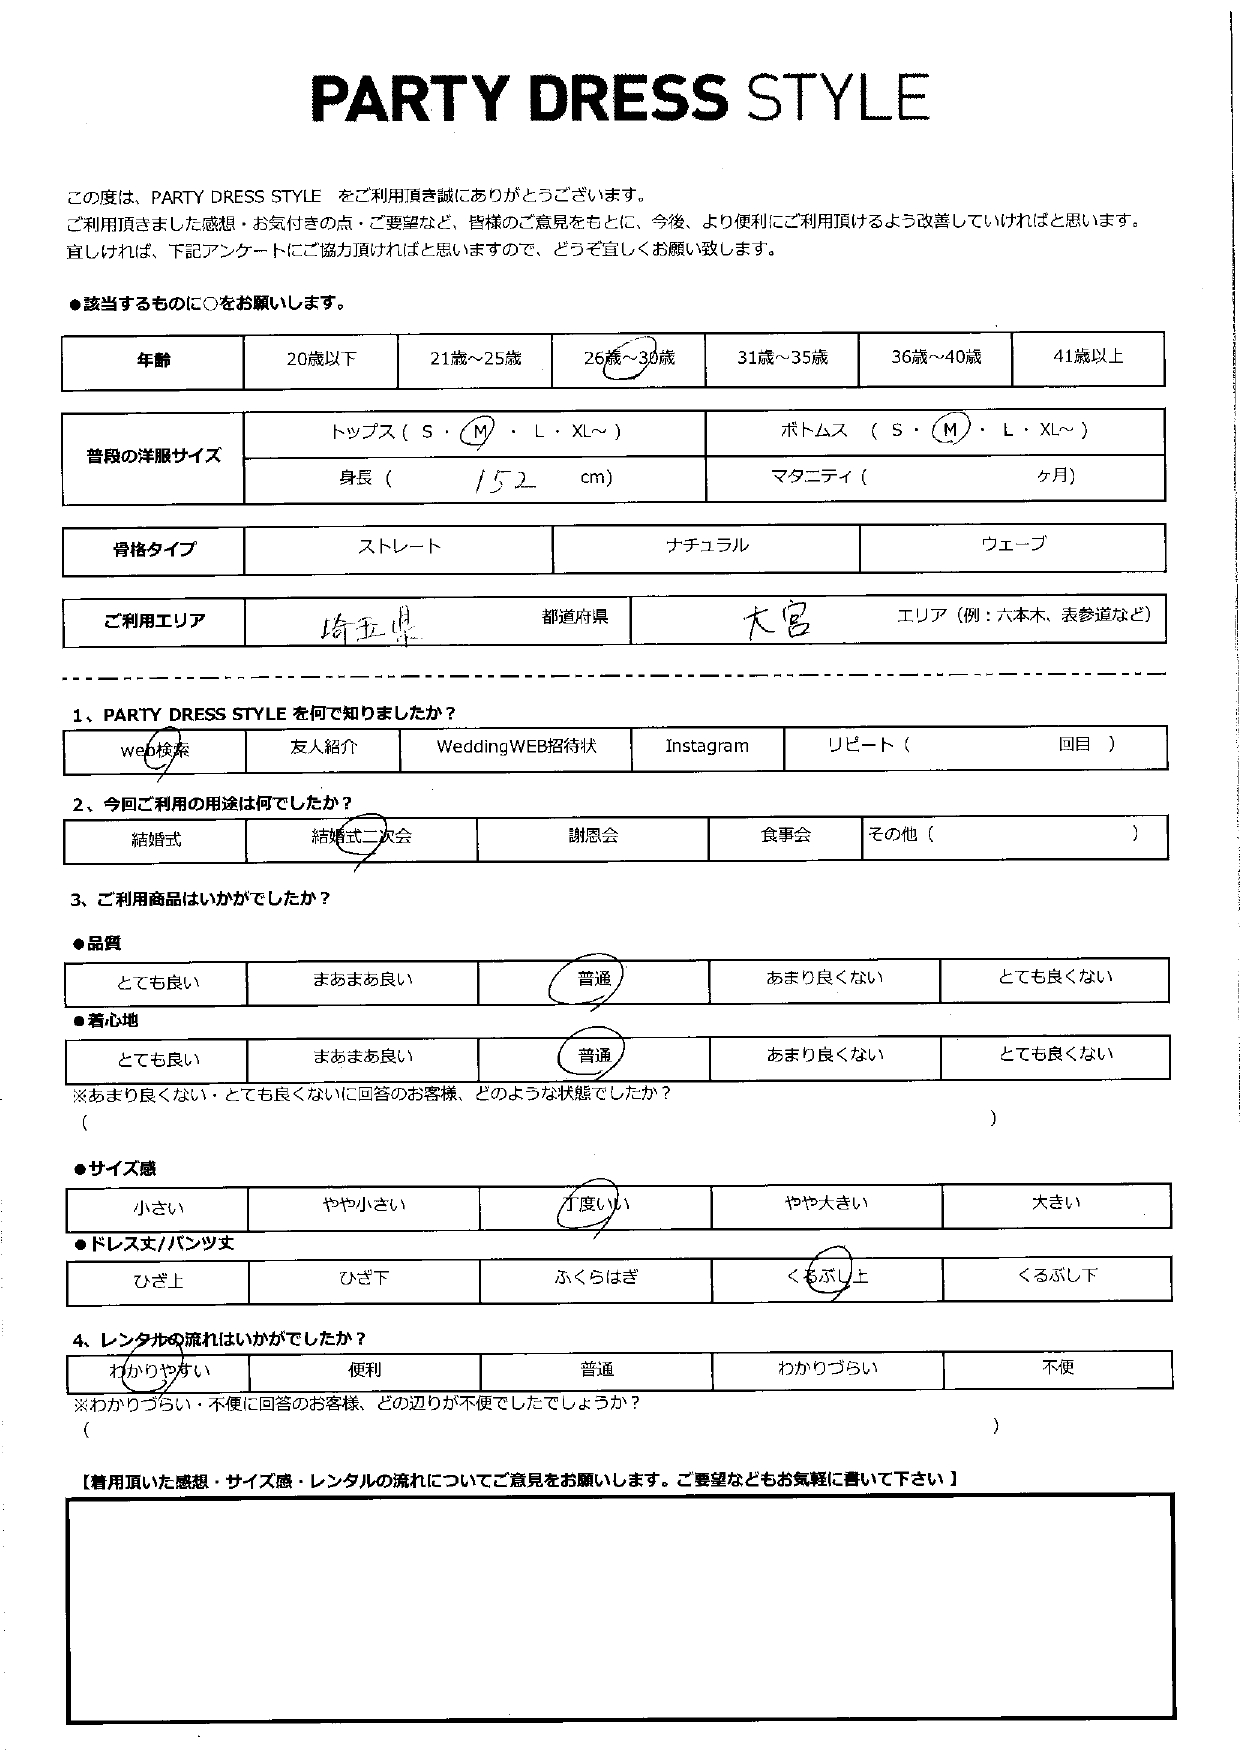 PARTY DRESS STYLE
この度は、PARTY DRESS STYLE をご利用頂き誠にありがとうございます。
ご利用頂きました感想・お気付きの点・ご要望など、皆様のご意見をもとに、今後、より便利にご利用頂けるよう改善していければと思います。
宜しければ、下記アンケートにご協力頂ければと思いますので、どうぞ宜しくお願い致します。
●該当するものに○をお願いします。
年齢 20歳以下 21歳～25歳 26歳～30歳 31歳～35歳 36歳～40歳 41歳以上
普段の洋服サイズ
トップス ( S ・ M ・ L ・ XL～ ) ボトムス ( S ・ M ・ L ・ XL～ )
身長 ( 152 cm) マタニティ ( ヶ月)
骨格タイプ ストレート ナチュラル ウェーブ
ご利用エリア 埼玉県 都道府県 大宮 エリア (例：六本木、表参道など)
1、PARTY DRESS STYLE を何で知りましたか？
web検索 友人紹介 WeddingWEB招待状 Instagram リピート ( 回目 )
2、今回ご利用の用途は何でしたか？
結婚式 結婚式二次会 謝恩会 食事会 その他 ( )
3、ご利用商品はいかがでしたか？
●品質
とても良い まあまあ良い 普通 あまり良くない とても良くない
●着心地
とても良い まあまあ良い 普通 あまり良くない とても良くない
※あまり良くない・とても良くないに回答のお客様、どのような状態でしたか？
( )
●サイズ感
小さい やや小さい 丁度いい やや大きい 大きい
●ドレス丈/パンツ丈
ひざ上 ひざ下 ふくらはぎ くるぶし上 くるぶし下
4、レンタルの流れはいかがでしたか？
わかりやすい 便利 普通 わかりづらい 不便
※わかりづらい・不便に回答のお客様、どの辺りが不便でしたでしょうか？
( )
【着用頂いた感想・サイズ感・レンタルの流れについてご意見をお願いします。ご要望などもお気軽に書いて下さい 】